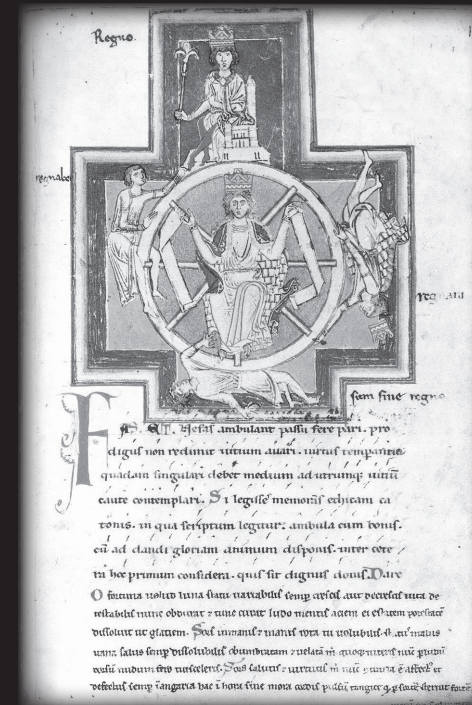 Regno.
regnabo
regnaui
sum sine regno
FAS ET Nefas ambulant passu fere pari. pro
digus non redimit uitium auari. uirtus temperantia
quadam singulari debet medium ad utrumque uitiū
caute contemplari. Si legisse memoras ethicam ca
tonis. in qua scriptum legitur: ambula cum bonis.
cū ad dandi gloriam animum disponis. inter cete
ra hoc primum considera. quis sit dignus donis. Dare
O fortuna uelud luna statu uariabilis semp crescis aut decrescis uita de
testabilis nunc obdurat & tunc curat ludo mentis aciem egestatem potestatē
dissoluit ut glatiem. Sors inmanis & inanis rota tu uolubilis status malus
uana salus semp dissolubilis obumbratam & uelatā m quoq niteris nūc p ludū
dorsū nudum fero tui sceleris. Sors salutis & uirtutis m nūc
defectus semp ī angaria hac ī hora sine mora cordis pulsū tangite